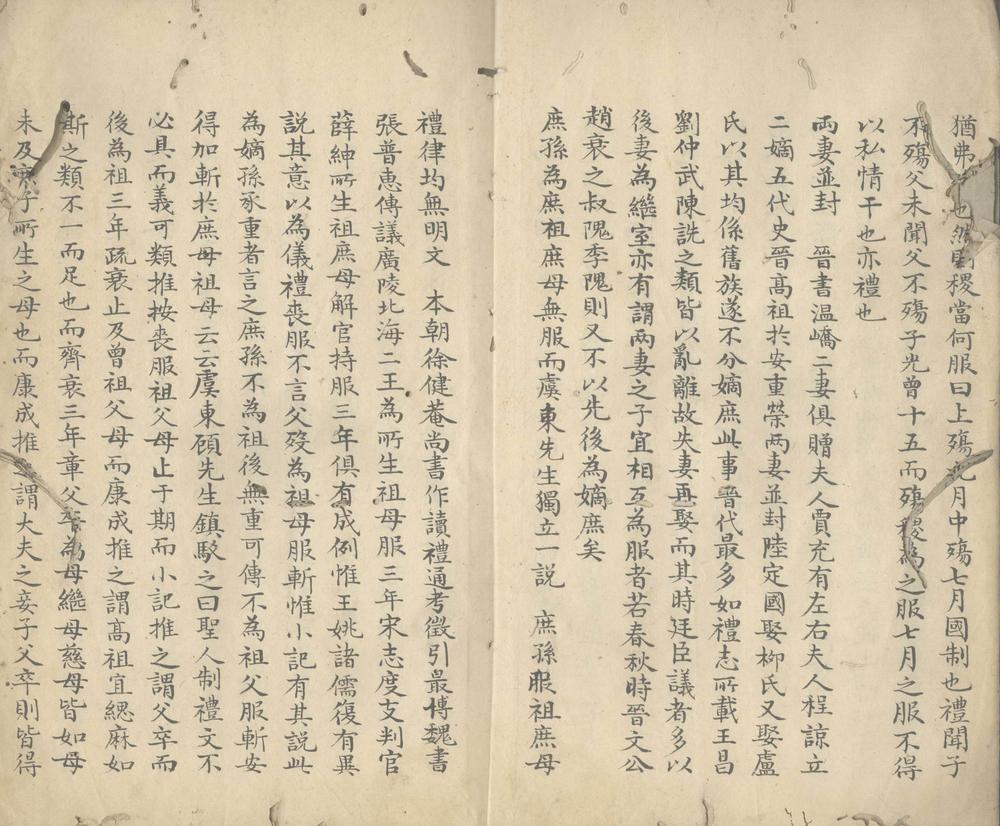 猶弗子也然則稷當何服曰上殤九月中殤七月國制也禮聞子
不殤父未聞父不殤子光曾十五而殤稷為之服七月之服不得
以私情干也亦禮也
兩妻並封 晉書温嶠二妻俱贈夫人賈充有左右夫人程諒立
二嫡五代史晉高祖於安重榮兩妻並封陸定國娶柳氏又娶盧
氏以其均係舊族遂不分嫡庶此事晉代最多如禮志所載王昌
劉仲武陳詵之類皆以亂離故失妻再娶而其時廷臣議者多以
後妻為繼室亦有謂兩妻之子宜相互為服者若春秋時晉文公
趙衰之叔隗季隗則又不以先後為嫡庶矣
庶孫為庶祖庶母無服而虞東先生獨立一説 庶孫服祖庶母
禮律均無明文 本朝徐健菴尚書作讀禮通考徵引最博魏書
張普惠傳議廣陵北海二王為所生祖母服三年宋志度支判官
薛紳所生祖庶母解官持服三年俱有成例惟王姚諸儒復有異
説其意以為儀禮喪服不言父歿為祖母服斬惟小記有其説此
為嫡孫承重者言之庶孫不為祖後無重可傳不為祖父服斬安
得加斬於庶母祖母云云虞東顧先生鎮駁之曰聖人制禮文不
必具而義可類推按喪服祖父母止于期而小記推之謂父卒而
後為祖三年疏衰止及曾祖父母而康成推之謂高祖宜緦麻如
斯之類不一而足也而齊衰三年章父卒為母繼母慈母皆如母
未及庶子所生之母也而康成推之謂大夫之妾子父卒則皆得